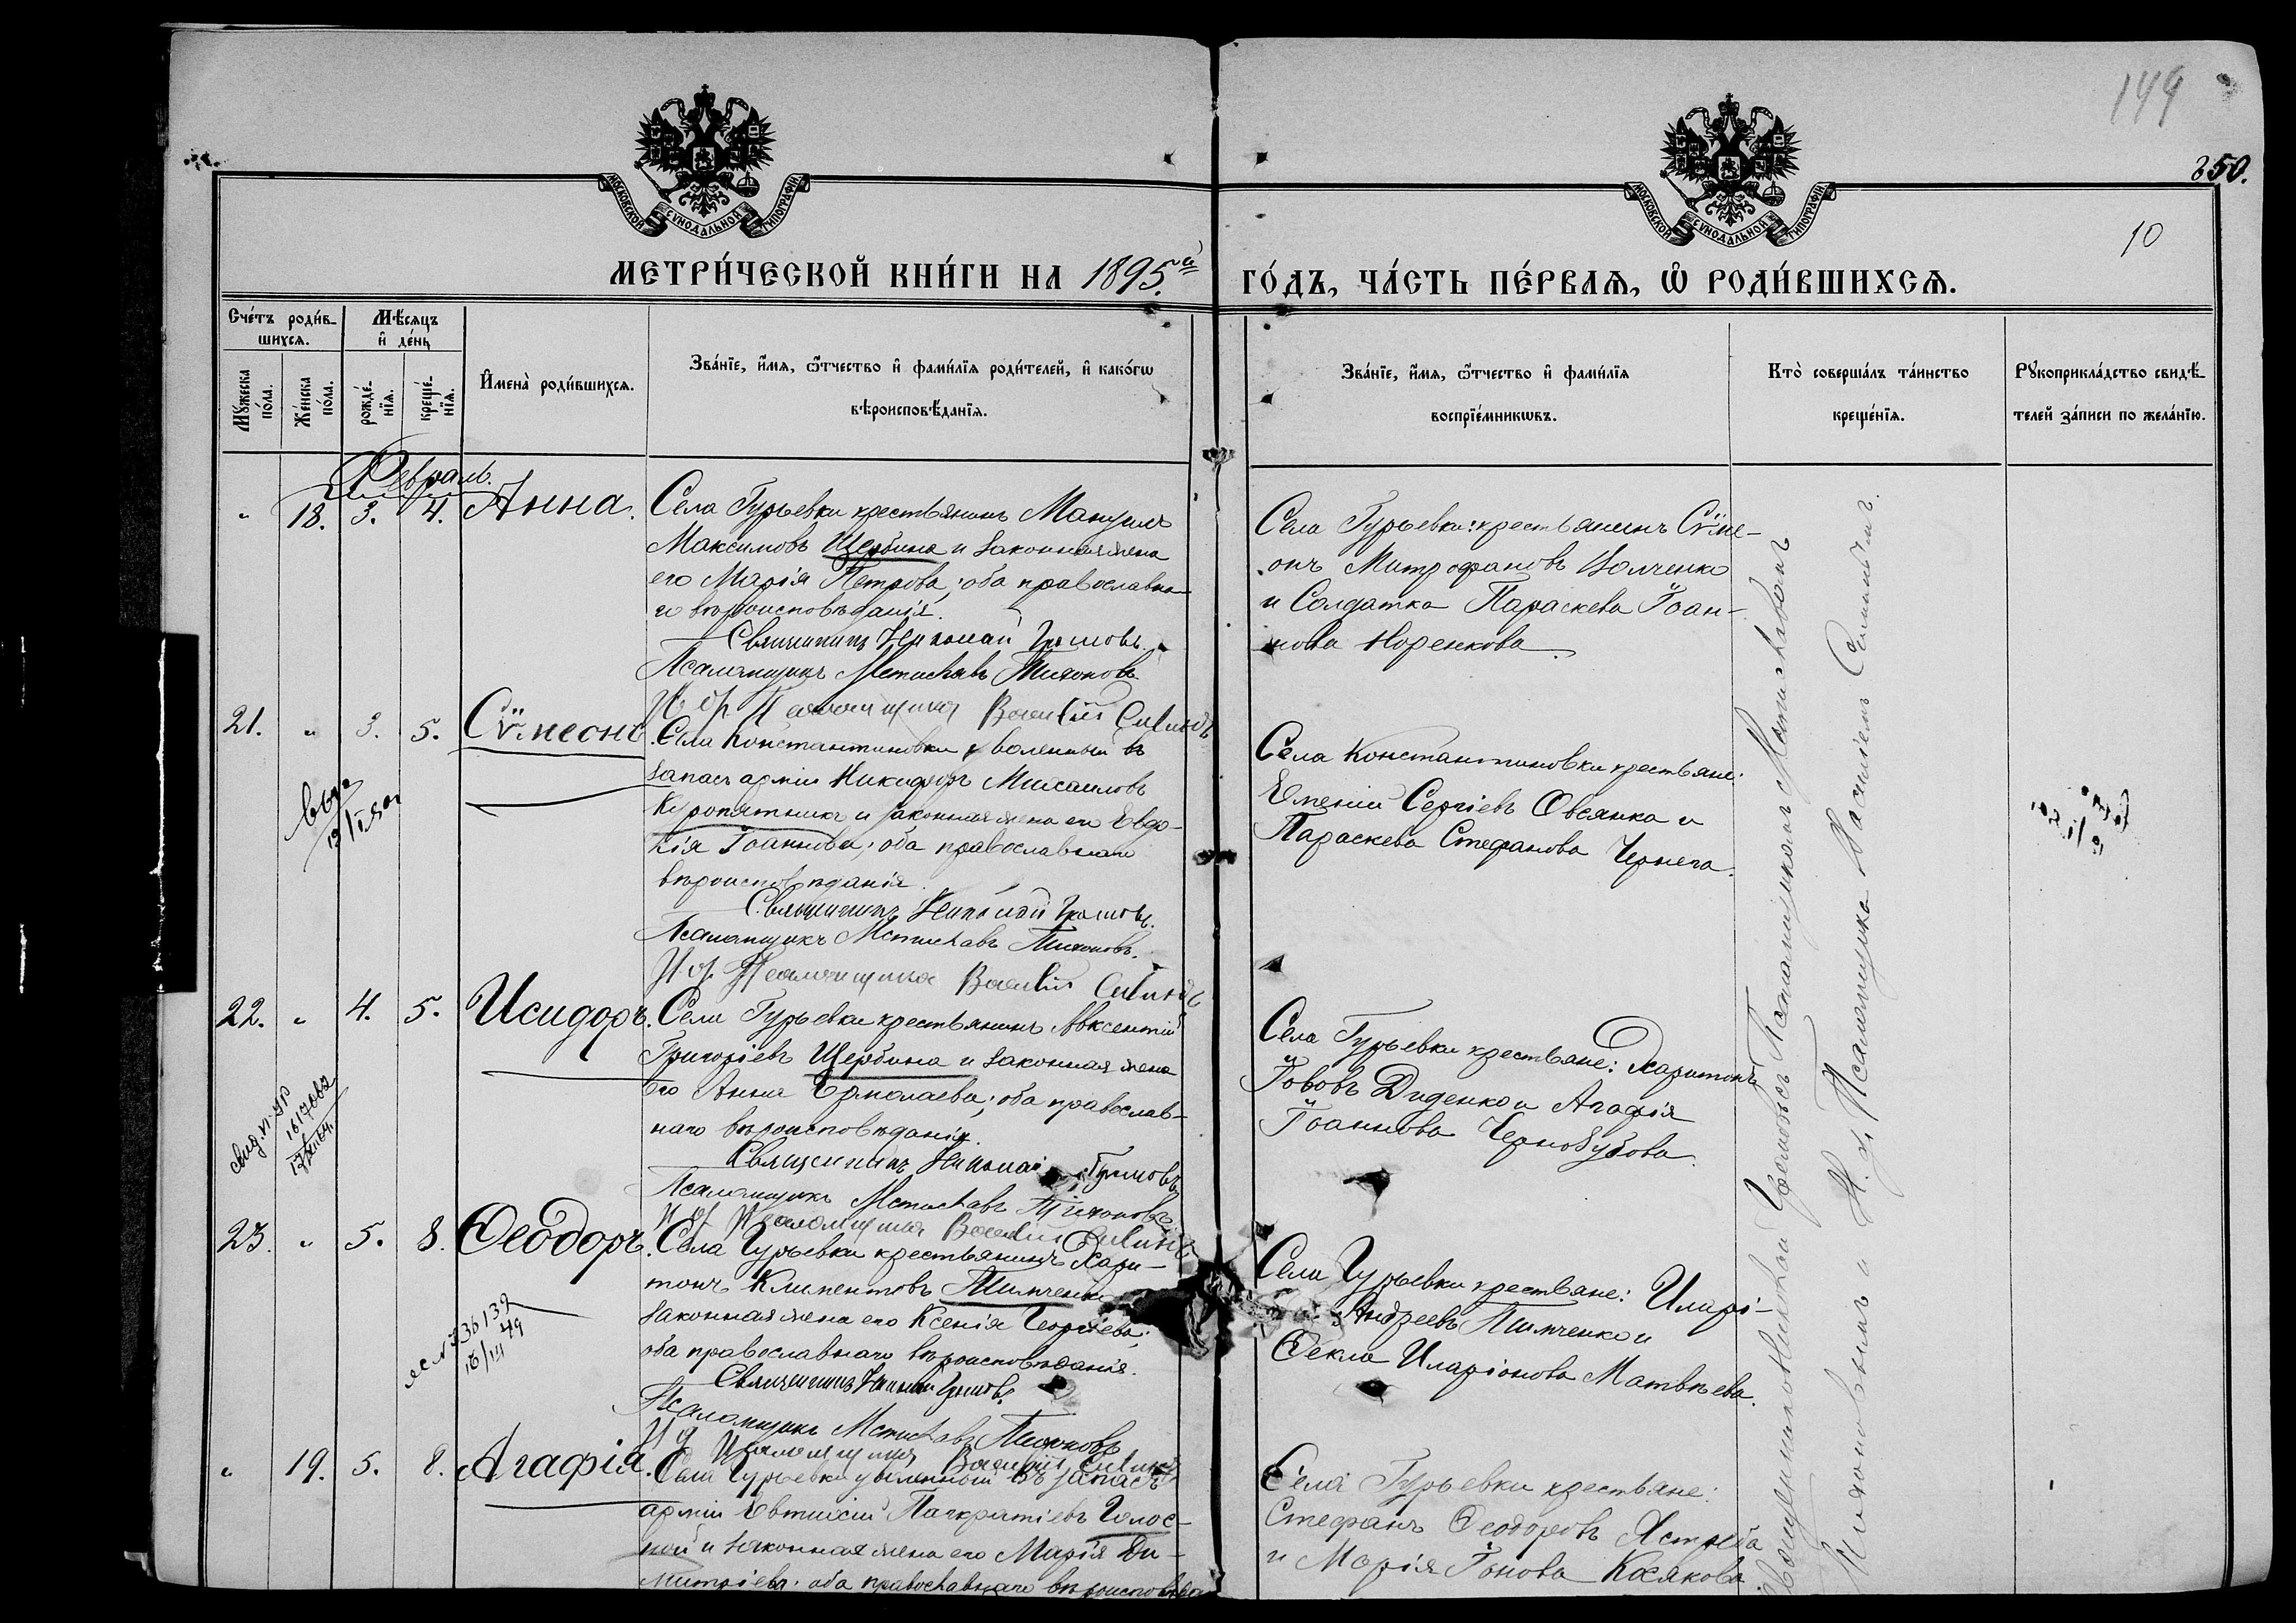 149
250.
10
МОСКОВСКОЙ СѴНОДАЛЬНОЙ ТИПОГРАФІИ
МОСКОВСКОЙ СѴНОДАЛЬНОЙ ТИПОГРАФІИ
МЕТРИ́ЧЕСКОЙ КНИ́ГИ НА 1895.й ГО́ДЪ, ЧА́СТЬ ПЕ́РВАѦ, Ѡ҆ РОДИ́ВШИХСѦ.
Счетъ роди́в-
шихсѧ.
Мѣ́сѧцъ
и҆ де́нь
Мꙋ́жеска по́ла.
Же́нска по́ла.
рожде́-нїѧ.
креще́-нїѧ.
И҆мена̀ роди́вшихсѧ.
Зва́нїе, и҆́мѧ, ѻ҆́тчество и҆ фами́лїѧ роди́телей, и҆ како́гѡ
вѣроисповѣ́данїѧ.
Зва́нїе, и҆́мѧ, ѻ҆́тчество и҆ фами́лїѧ
воспрїе́мникѡвъ.
Кто̀ соверша́лъ та́инство
креще́нїѧ.
Рꙋкоприкла́дство свидѣ́-
телей за́писи по жела́нїю.
Февраль.
" 18. 3. 4. Анна.
Села Гурьевки крестьянинъ Мануилъ
Максимовъ Щербина и законная жена
его Марія Петрова; оба православна-
го вѣроисповѣданія.
Священникъ Николай Громовъ.
Псаломщикъ Мстиславъ Тихоновъ
И. об. Псаломщика Василій
Села Гурьевки: крестьянинъ Сѵме-
онъ Митрофановъ Волченко
и Солдатка Параскева Іоан-
нова Норенкова.
21. " 3. 5. Сѵмеонъ.
Села Константиновки уволенный въ
запасъ арміи Никифоръ Михаиловъ
Куропятникъ и законная жена его Евдо-
кія Іоаннова; оба православнаго
вѣроисповѣданія.
Священникъ Николай Громовъ.
Псаломщикъ Мстиславъ Тихоновъ.
И. об. Псаломщика Василій
Села Константиновки крестьяне:
Евгеній Сергіевъ Овсянко и
Параскева Стефанова Чернега.
22. " 4. 5. Исидоръ.
Села Гурьевки крестьянинъ Авксентій
Григоріевъ Щербина и законная жена
его Анна Ермолаева; оба православ-
наго вѣроисповѣданія.
Священникъ Николай Громовъ
Псаломщикъ Мстиславъ Тихоновъ
И. об. Псаломщика Василій
Села Гурьевки крестьяне: Харитонъ
Іововъ Диденко и Агафія
Іоаннова Чернобубова.
23. " 5. 8. Ѳеодоръ.
Села Гурьевки крестьянинъ Хари-
тонъ Климентовъ Тимченко
законная жена его Ксенія Георгіева;
оба православнаго вѣроисповѣданія.
Священникъ Николай Громовъ.
Псаломщикъ Мстиславъ Тихоновъ
И. об. Псаломщика Василій
Села Гурьевки крестьяне: Иларі-
Андреевъ Тимченко и
Ѳекла Иларіонова Матвѣева.
" 19. 5. 8. Агафія.
Села Гурьевки уволенный въ запасъ
арміи Евтихій Панкратіевъ Голос-
ной и законная жена его Марія Ди-
митріева; оба православнаго вѣроисповѣдан
Села Гурьевки крестьяне:
Стефанъ Ѳеодоровъ Ястреба
и Марія Іонова Косякова
Громовъ съ Псаломщикомъ
Тихоновымъ и И. об. Псаломщика Василіемъ